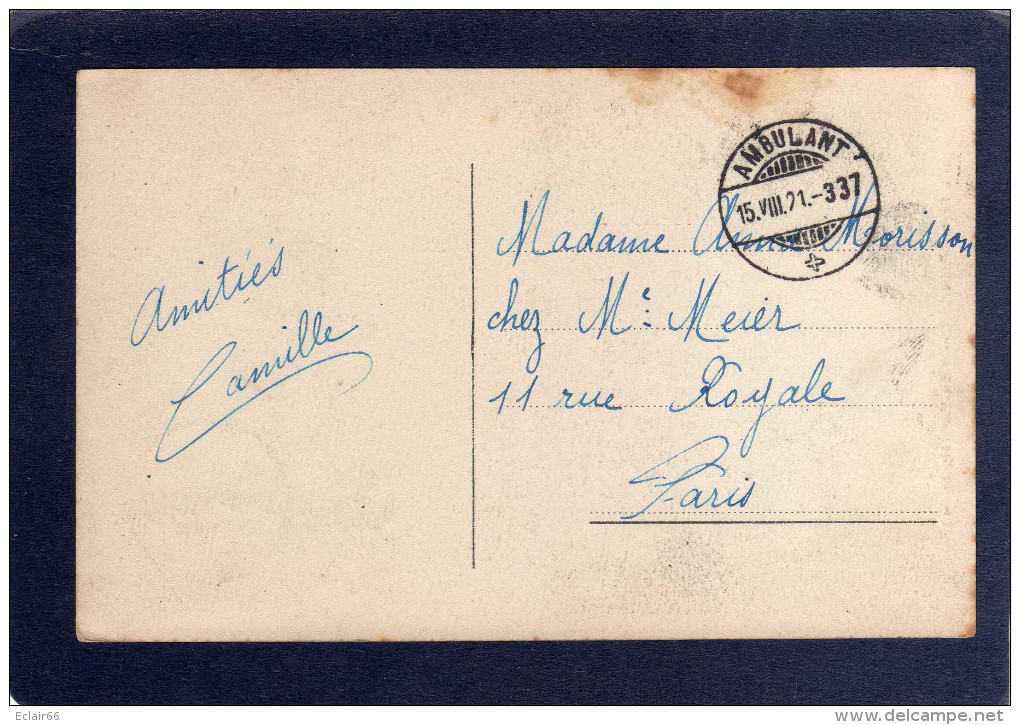 AMBULANT
15.VIII.21.-337
Amitiés
Camille
Madame Anna Morisson
chez Mr. Meier
11 rue Royale
Paris
Eclair66
www.delcampe.net